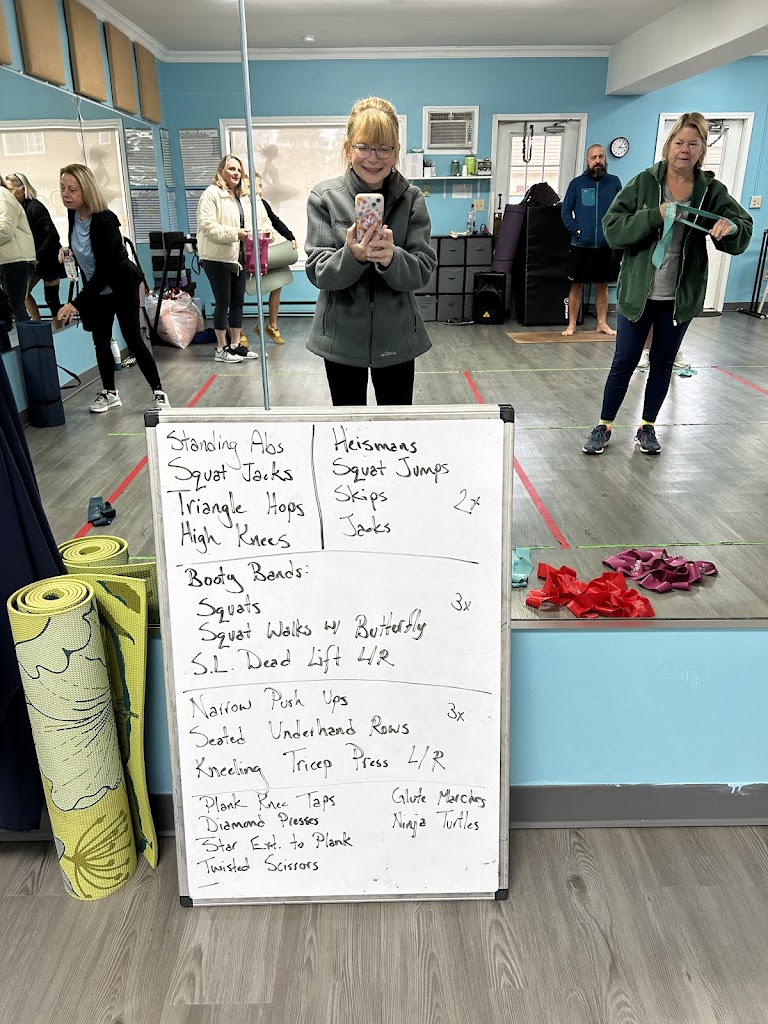 Standing Abs
Squat Jacks
Triangle Hops
High Knees
Heismans
Squat Jumps
Skips
Jacks
2x
Booty Bands:
Squats
Squat Walks w/ Butterfly
S.L. Dead Lift L/R
3x
Narrow Push Ups
Seated Underhand Rows
Kneeling Tricep Press L/R
3x
Plank Knee Taps
Diamond Presses
Star Ext. to Plank
Twisted Scissors
Glute Marches
Ninja Turtles